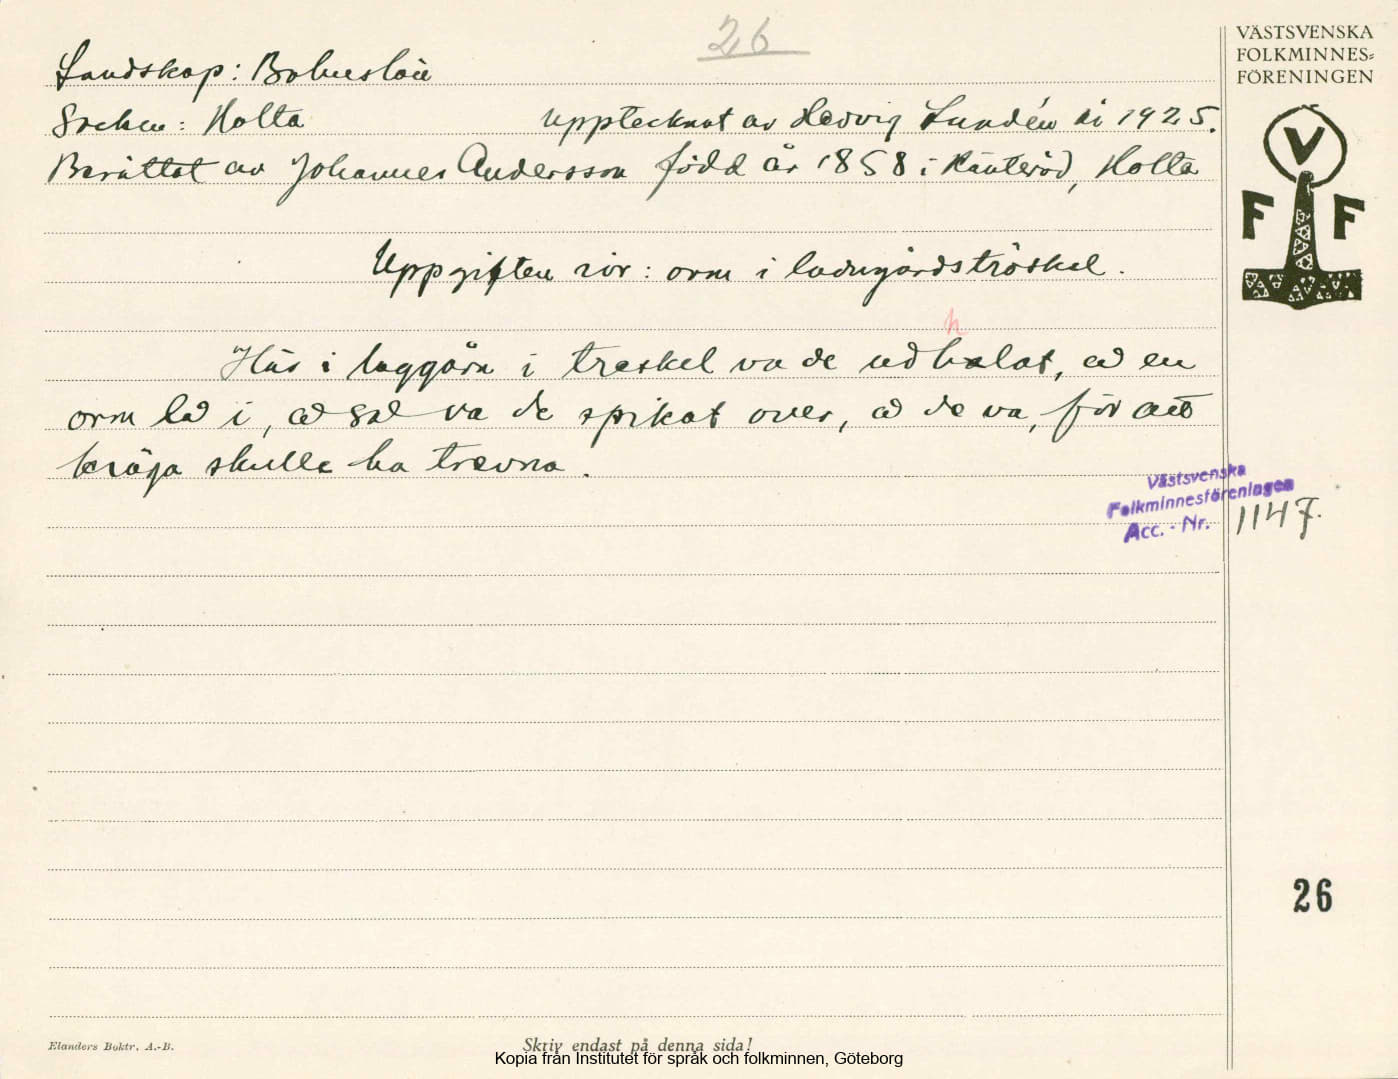 26
VÄSTSVENSKA
FOLKMINNES=
FÖRENINGEN
V
F F
Landskap: Bohuslän
Socken: Holta Upptecknat av Hedvig Lundén år 1925.
Berättat av Johannes Andersson född år 1858 i Känteröd, Holta
Uppgiften rör: orm i ladugårdströskel.
Hus i laggårn i treskel va de udholat, æd en
orm la i, æd sæ va de spikat over, æ de va, för att
kräga skulle ha trevna.
Västsvenska
Folkminnesföreningen
Acc. - Nr. 1147.
26
Elanders Boktr. A.-B.
Skriv endast på denna sida!
Kopia från Institutet för språk och folkminnen, Göteborg